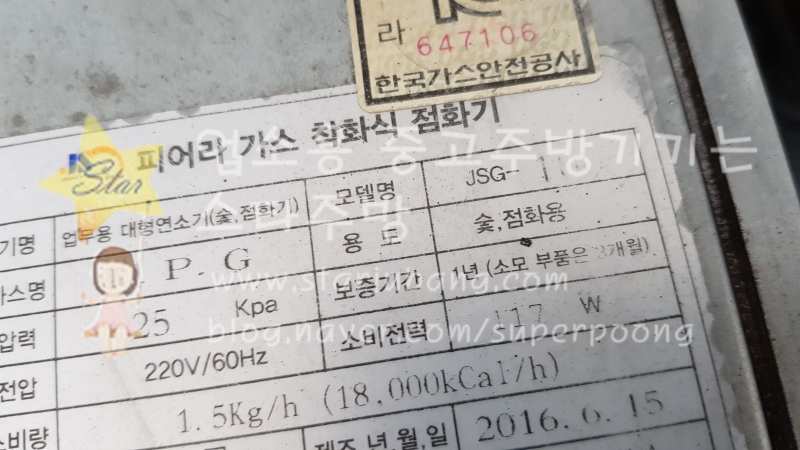 라 647106
한국가스안전공사
피어라 가스 착화식 점화기
Star
업소용 중고주방기기는
스타주방
www.starjubang.com
blog.naver.com/superpoong
기명 업무용 대형연소기(숯,점화기) 모델명 JSG-
가스명 P.G 용 도 숯,점화용
압력 25 Kpa 보증기간 1년 (소모 부품은 3개월)
전압 220V/60Hz 소비전력 117 W
소비량 1.5Kg/h (18,000kCal/h)
제조 년,월,일 2016.6.15